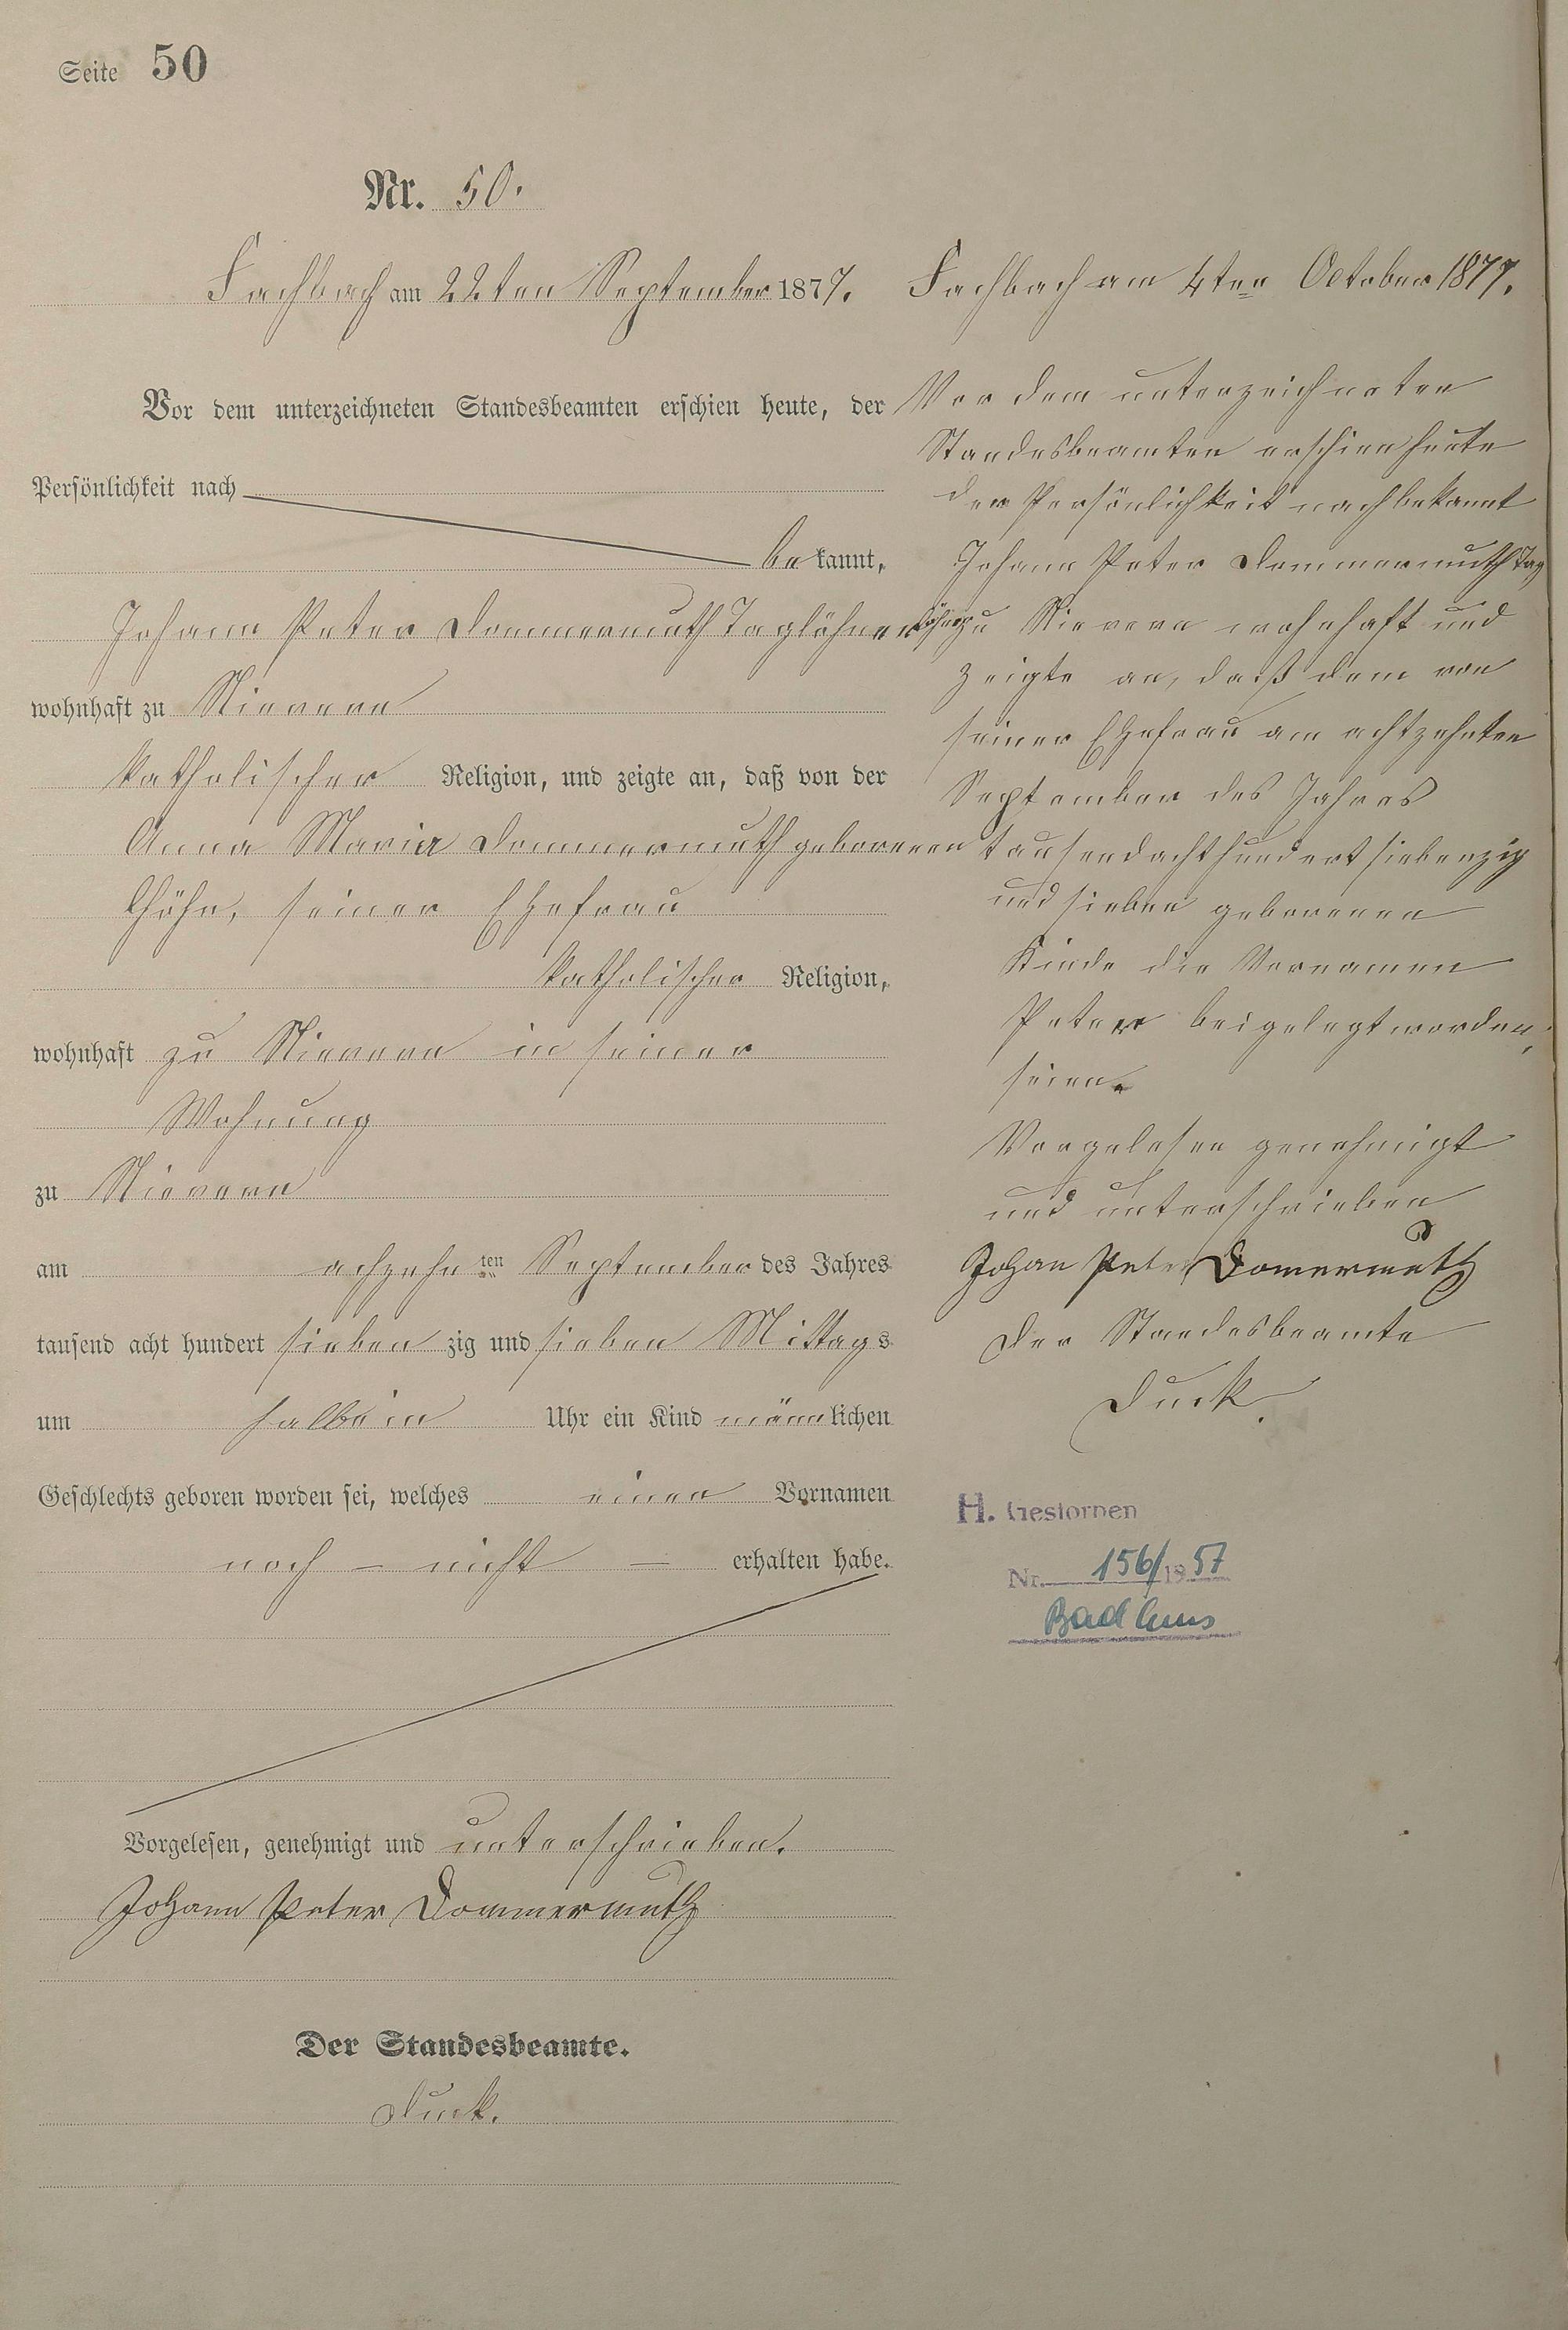 Seite 50
Nr. 50.
Fachbach am 22ten September 1877.
Vor dem unterzeichneten Standesbeamten erschien heute, der
Persönlichkeit nach
be kannt,
Johann Peter Dommermuth Taglöhner
wohnhaft zu Nievern
katholischer Religion, und zeigte an, daß von der
Anna Maria Dommermuth geborenen
seiner Ehefrau
katholischer Religion,
wohnhaft zu Nievern in seiner
Wohnung
zu Nievern
am achzehn ten September des Jahres
tausend acht hundert sieben zig und sieben Mittags
um halb ein Uhr ein Kind männlichen
Geschlechts geboren worden sei, welches einen Vornamen
noch – nicht – erhalten habe.
Vorgelesen, genehmigt und unterschrieben.
Johann Peter Dommermuth
Der Standesbeamte.
Duck.
Fachbach am 4ten October 1877.
Vor dem unterzeichneten
Standesbeamten erschien heute
der Persönlichkeit nach bekannt
Johann Peter Dommermuth Tag
löhner zu Nievern wohnhaft und
zeigte an, daß dem von
seiner Ehefrau am achtzehnten
September des Jahres
tausendachthundert siebenzig
und sieben geborenen
Kinde die Vornamen
Peter beigelegt worden,
seien.
Vorgelesen genehmigt
und unterschrieben
Johan Peter Domermuth
Der Standesbeamte
Duck.
H. Gestorben
Nr. 156/1957
Bad Ems